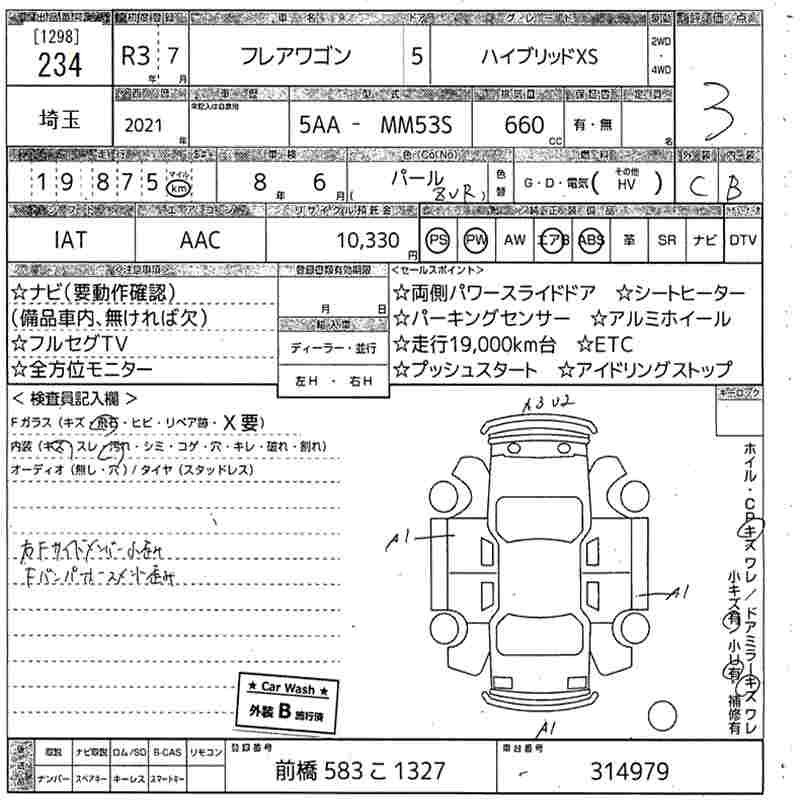 [1298]
234
埼玉
初度登録
R3 年 7 月
車名
フレアワゴン
ドア
5
グレード
ハイブリッドXS
2WD
・
4WD
評価点
3
2021 年
車歴
型式
5AA - MM53S
排気量
660 CC
有・無
名
走行
19875 マイル km
車検
8 年 6 月
色(Co.No)
パール
( ZVR )
色替
燃料
G・D・電気( その他 HV )
外装
C
内装
B
シフト
IAT
エアコン
AAC
リサイクル預託金
10,330 円
PS PW AW エアB ABS 革 SR ナビ DTV
注意事項
☆ナビ(要動作確認)
(備品車内、無ければ欠)
☆フルセグTV
☆全方位モニター
登録書類有効期限
月 日
輸入車
ディーラー・並行
左H ・ 右H
<セールスポイント>
☆両側パワースライドドア ☆シートヒーター
☆パーキングセンサー ☆アルミホイール
☆走行19,000km台 ☆ETC
☆プッシュスタート ☆アイドリングストップ
< 検査員記入欄 >
Fガラス (キズ 飛石・ヒビ・リペア跡・X要)
内装 (キズ スレ 汚れ・シミ・コゲ・穴・キレ・破れ・割れ)
オーディオ (無し・穴) / タイヤ (スタッドレス)
右Fサイドメンバー小歪み
キーロック
A3 U2
A1
A1
A1
ホイル・CPキズ ワレ / ドアミラーキズ ワレ
小キズ有 小U有・補修有
★ Car Wash ★
外装 B 施行済
取説 ナビ取説 ロム/SD B-CAS リモコン
ナンバー スペアキー キーレス スマートキー
登録番号
前橋 583 こ 1327
車台番号
314979